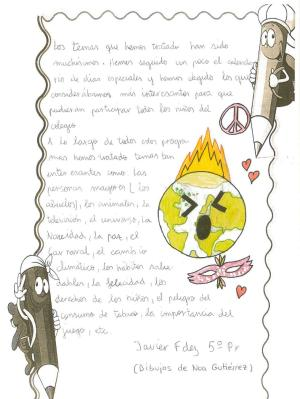 Los temas que hemos tratado han sido
muchísimos. Hemos seguido un poco el calenda
rio de días especiales y hemos elegido los que
considerábamos más interesantes para que
pudieran participar todos los niños del
colegio.
A lo largo de todos estos progra
mas hemos tratado temas tan
interesantes como: Las
personas mayores (los
abuelos), los animales, la
televisión, el universo, la
Navidad, la paz, el
carnaval, el cambio
climático, los hábitos salu
dables, la felicidad, los
derechos de los niños, el peligro del
consumo de tabaco, la importancia del
juego, etc.
Javier Fdez 5º Pr
(Dibujos de Noa Gutiérrez)